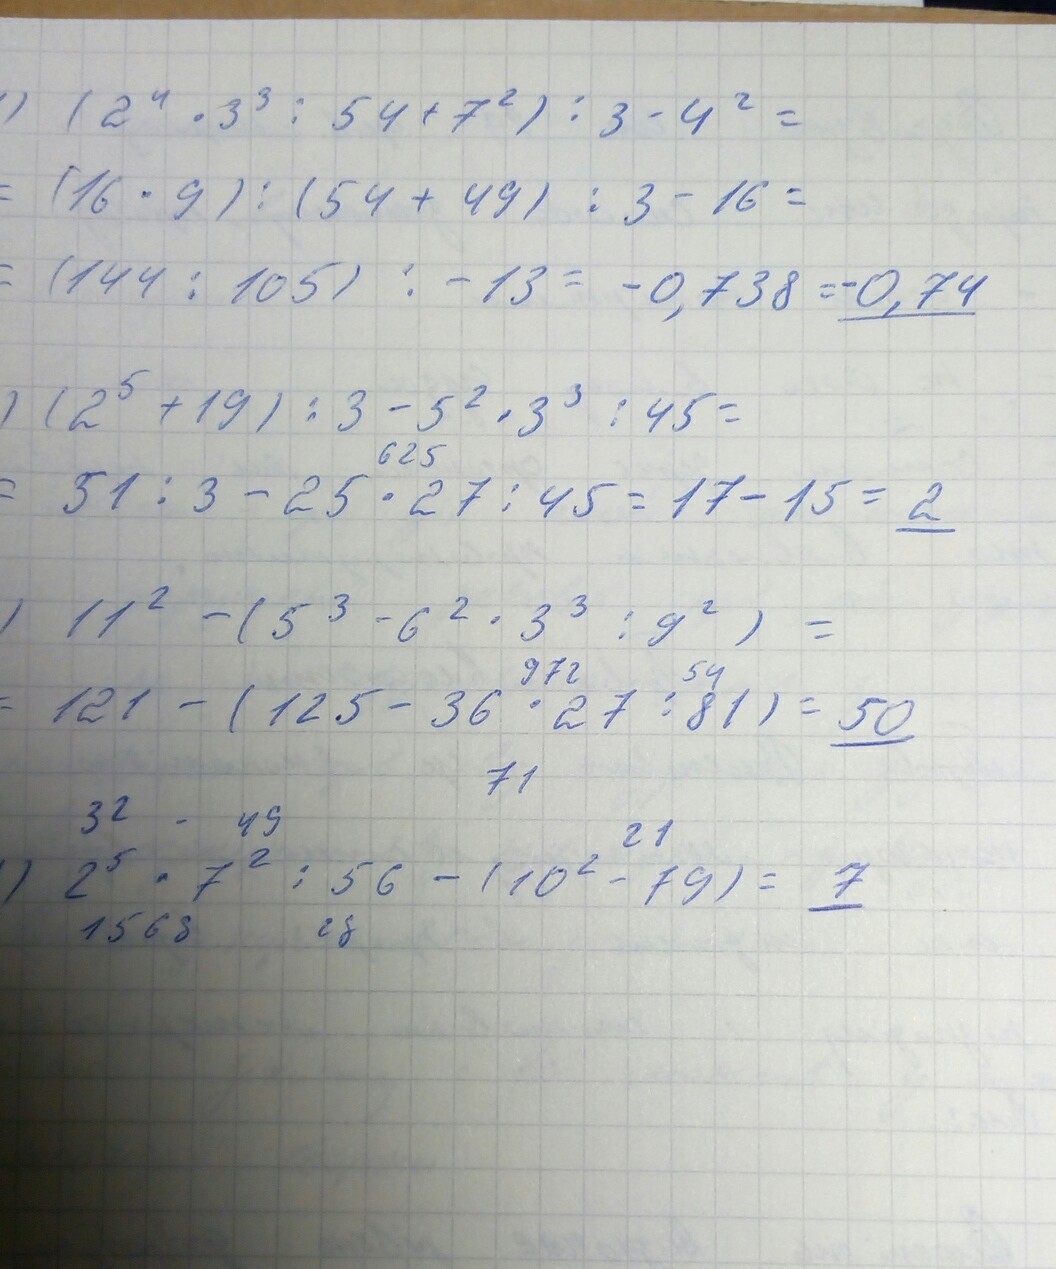 ) (2⁴ · 3³ : 54 + 7²) : 3 - 4² =
= (16 · 9) : (54 + 49) : 3 - 16 =
= (144 : 105) : - 13 = -0,738 = -0,74
) (2⁵ + 19) : 3 - 5² · 3³ : 45 =
625
= 51 : 3 - 25 · 27 : 45 = 17 - 15 = 2
) 11² - (5³ - 6² · 3³ : 9²) =
972 54
= 121 - (125 - 36 · 27 : 81) = 50
71
32 - 49
21
) 2⁵ · 7² : 56 - (10² - 79) = 7
1568 28